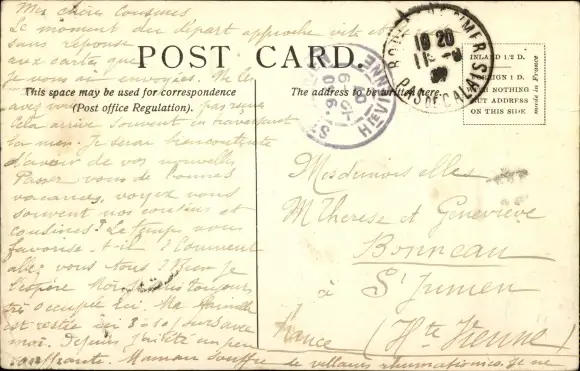 Mes chères Cousines
Le moment du départ approche vite et
sans réponse
aux cartes que
je vous ai envoyées. Ne les
avez vous pas reçues
Cela arrive souvent en traversant
la mer. Je serai bien contente
d'avoir de vos nouvelles
Passez vous de bonnes
vacances, voyez vous
souvent nos cousins et
cousines? Le temps vous
favorise-t-il? Comment
allez vous tous? Bien je
l'espère. Moi suis toujours
très occupée ici. Ma famille
est restée ici 8 à 10 jours avec
moi. Depuis j'ai été un peu
souffrante. Maman souffre de vilains rhumatismes. Je ne
POST CARD.
This space may be used for correspondence
(Post office Regulation).
The address to be written here.
INLAND 1/2 D.
FOREIGN 1 D.
WITH NOTHING
BUT ADDRESS
ON THIS SIDE
made in France
BOULOGNE S MER
18 20
11 -9
PAS DE CALAIS
HTE VIENNE
Mesdemoiselles
M Thérèse et Geneviève
Bonneau
à St Junien
(Hte Vienne)
France